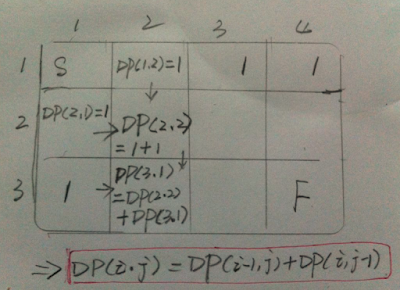 1 2 3 4
1 S DP(1,2)=1 1 1
2 DP(2,1)=1 DP(2,2)
=1+1
3 1 DP(3,1) F
=DP(2.2)
+DP(3.1)
⇒ DP(i.j) = DP(i-1,j)+DP(i,j-1)